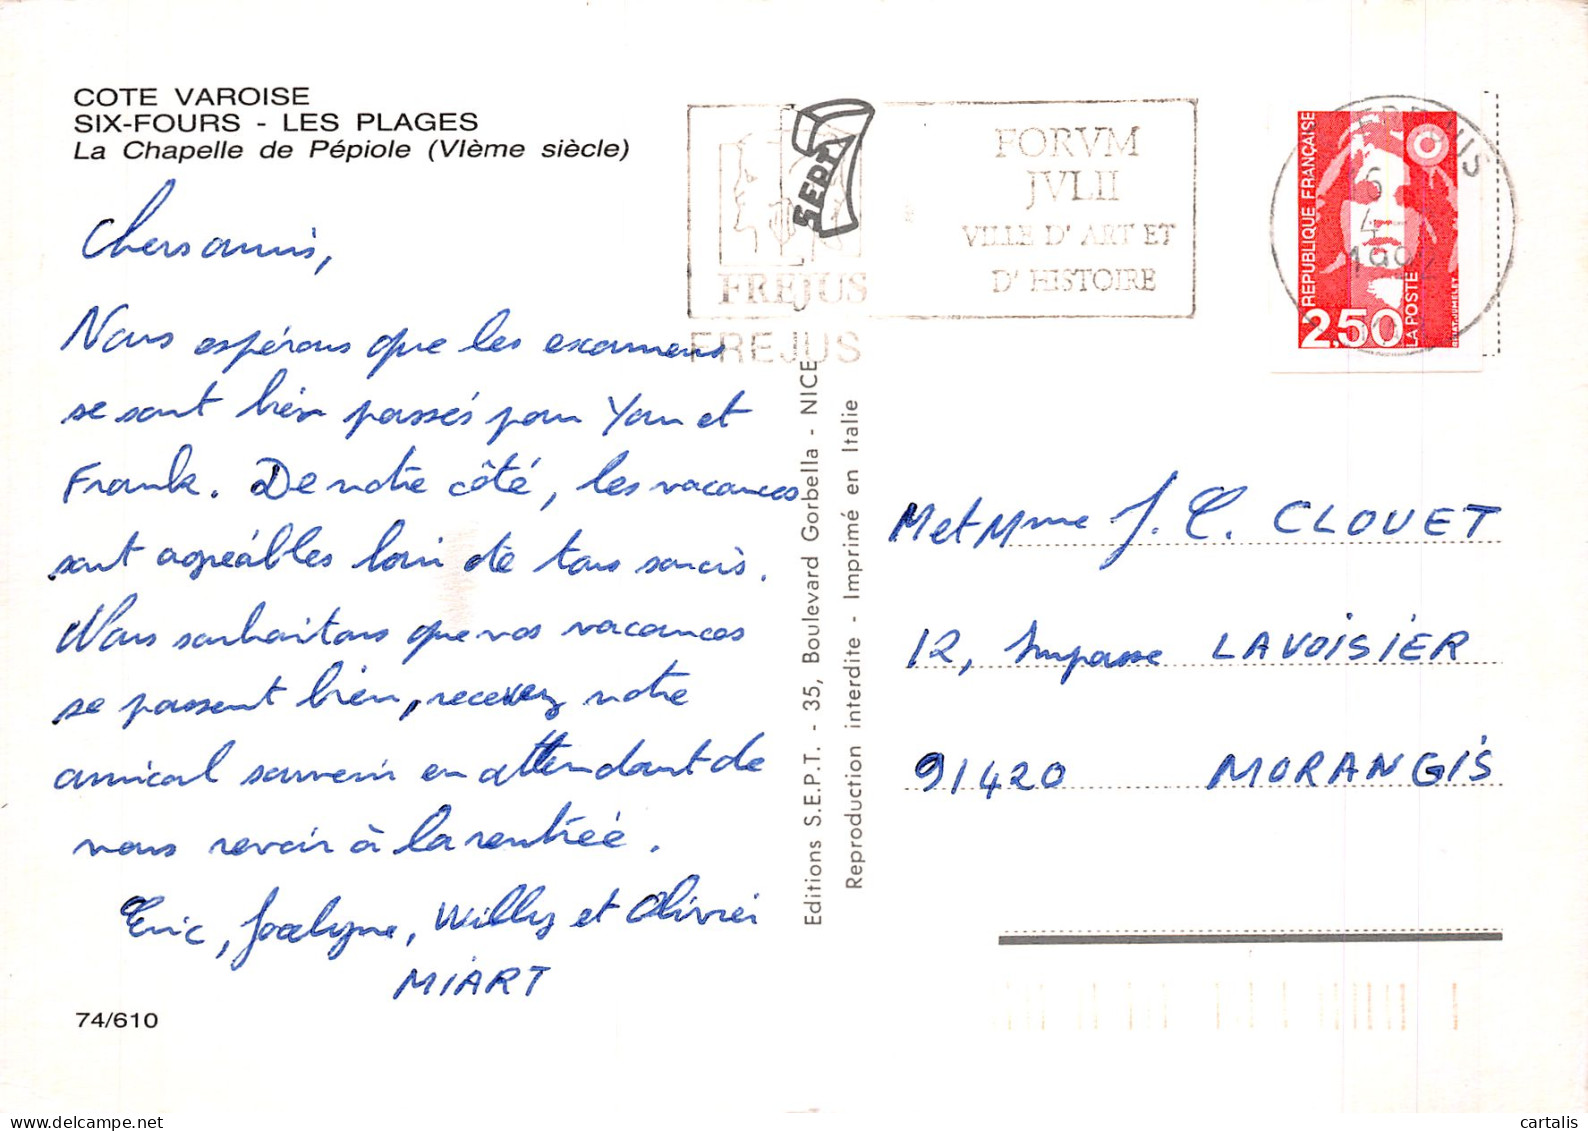 COTE VAROISE
SIX-FOURS - LES PLAGES
La Chapelle de Pépiole (VIème siècle)
Chers amis,
Nous espérons que les examens
se sont bien passés pour Yan et
Frank. De notre côté, les vacances
sont agréables loin de tous soucis.
Nous souhaitons que vos vacances
se passent bien, recevez notre
amical souvenir en attendant de
nous revoir à la rentrée.
Eric, Jocelyne, Willy et Olivier
MIART
74/610
SEPT
FREJUS
FORVM
JVLII
VILLE D'ART ET
D'HISTOIRE
FREJUS
Editions S.E.P.T. - 35, Boulevard Gorbella - NICE
Reproduction interdite - Imprimé en Italie
REPUBLIQUE FRANÇAISE
2,50
LA POSTE
BRIAT-JUMELET
FREJUS
M et Mme J. C. CLOUET
12, Impasse LAVOISIER
91420 MORANGIS
cartalis